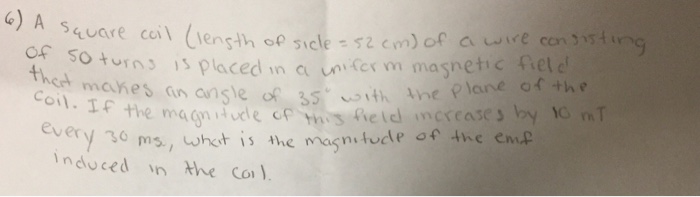 6) A square coil (length of side = 52 cm) of a wire consisting
of 50 turns is placed in a uniform magnetic field
that makes an angle of 35° with the plane of the
coil. If the magnitude of this field increases by 10 mT
every 30 ms, what is the magnitude of the emf
induced in the coil.